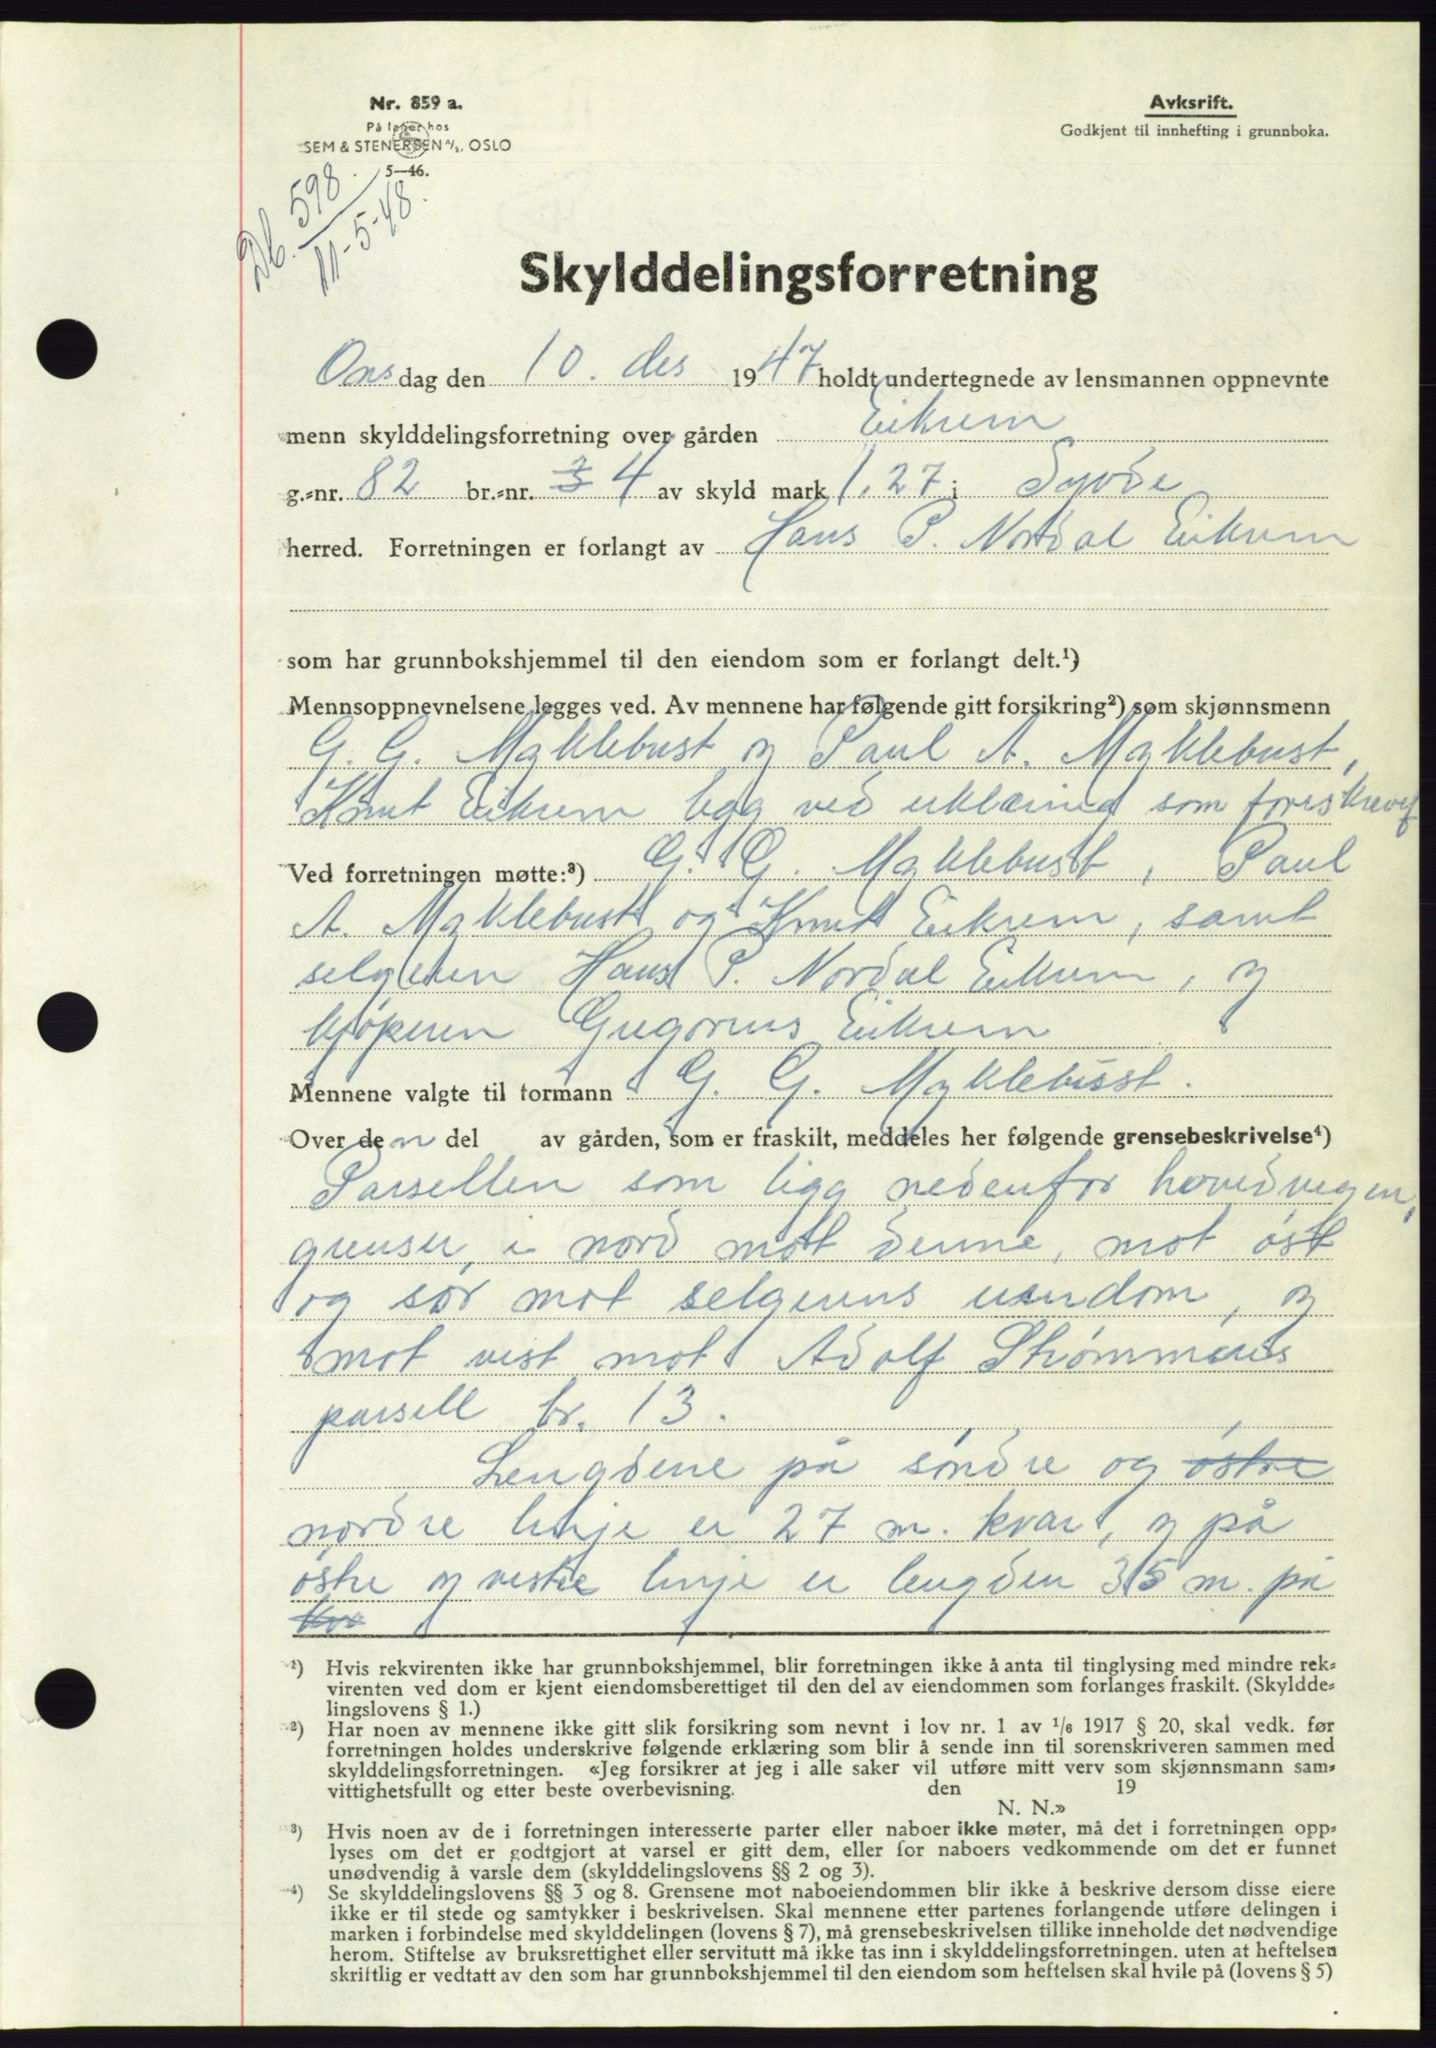 Nr. 859 a.
På lager hos
SEM & STENERSEN A/S, OSLO
5—46.
Avksrift.
Godkjent til innhefting i grunnboka.
Db. 598.
11-5-48.
Skylddelingsforretning
Onsdag den 10. des 1947 holdt undertegnede av lensmannen oppnevnte
menn skylddelingsforretning over gården Eikrem
g.=nr. 82 br.=nr. 3 4 av skyld mark 1.27 i Syvde
herred. Forretningen er forlangt av Hans P. Nordal Eikrem
som har grunnbokshjemmel til den eiendom som er forlangt delt.¹)
Mennsoppnevnelsene legges ved. Av mennene har følgende gitt forsikring²) som skjønnsmenn
G. G. Myklebust og Paul A. Myklebust,
Knut Eikrem legg ved erklæring som
Ved forretningen møtte:³) G. G. Myklebust, Paul
A. Myklebust og Knut Eikrem, samt
selgeren Hans P. Nordal Eikrem, og
kjøperen Gregorius Eikrem
Mennene valgte til formann G. G. Myklebust.
Over den del av gården, som er fraskilt, meddeles her følgende grensebeskrivelse⁴)
Parsellen som ligg nedenfor hovedvegen,
grenser i nord mot denne, mot øst
og sør mot selgerens eiendom, og
mot vest mot Adolf Strømmens
parsell br. 13.
Lengdene på søndre og østre
nørdre linje er 27 m. kvar, og på
østre og vestre linje er lengden 35 m. på
kva
¹) Hvis rekvirenten ikke har grunnbokshjemmel, blir forretningen ikke å anta til tinglysing med mindre rek=
virenten ved dom er kjent eiendomsberettiget til den del av eiendommen som forlanges fraskilt. (Skyldde=
lingslovens § 1.)
²) Har noen av mennene ikke gitt slik forsikring som nevnt i lov nr. 1 av 1/6 1917 § 20, skal vedk. før
forretningen holdes underskrive følgende erklæring som blir å sende inn til sorenskriveren sammen med
skylddelingsforretningen. «Jeg forsikrer at jeg i alle saker vil utføre mitt verv som skjønnsmann sam=
vittighetsfullt og etter beste overbevisning. den 19
N. N.»
³) Hvis noen av de i forretningen interesserte parter eller naboer ikke møter, må det i forretningen opp=
lyses om det er godtgjort at varsel er gitt dem, eller for naboers vedkommende om det er funnet
unødvendig å varsle dem (skylddelingslovens §§ 2 og 3).
⁴) Se skylddelingslovens §§ 3 og 8. Grensene mot naboeiendommen blir ikke å beskrive dersom disse eiere
ikke er til stede og samtykker i beskrivelsen. Skal mennene etter partenes forlangende utføre delingen i
marken i forbindelse med skylddelingen (lovens § 7), må grensebeskrivelsen tillike inneholde det nødvendige
herom. Stiftelse av bruksrettighet eller servitutt må ikke tas inn i skylddelingsforretningen. uten at heftelsen
skriftlig er vedtatt av den som har grunnbokshjemmel til den eiendom som heftelsen skal hvile på (lovens § 5)